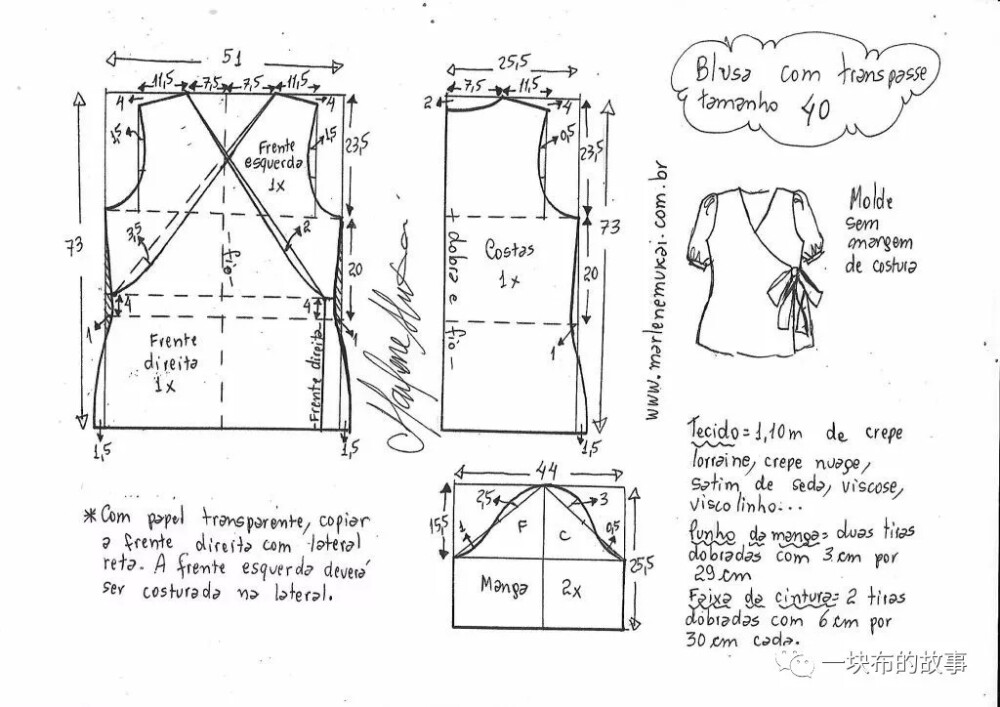 51
11,5 7,5 7,5 11,5
4
4
1,5
1,5
23,5
Frente
esquerda
1x
73
3,5
2
fio
20
4
4
1
1
Frente
direita
1x
Frente direita
1,5
1,5
25,5
7,5 11,5
2
4
0,5
23,5
73
dobra e fio
Costas
1x
20
1
1,5
www.marlenemukai.com.br
Blusa com transpasse
tamanho 40
Molde
sem
margem
de costura
44
2,5
3
15,5
1
F
C
0,5
25,5
Manga 2x
*Com papel transparente, copiar
a frente direita com lateral
reta. A frente esquerda deverá
ser costurada na lateral.
Tecido=1,10m de crepe
lorraine, crepe nuage,
satim de seda, viscose,
viscolinho...
Punho da manga= duas tiras
dobradas com 3 cm por
29 cm
Faixa da cintura= 2 tiras
dobradas com 6 cm por
30 cm cada.
一块布的故事